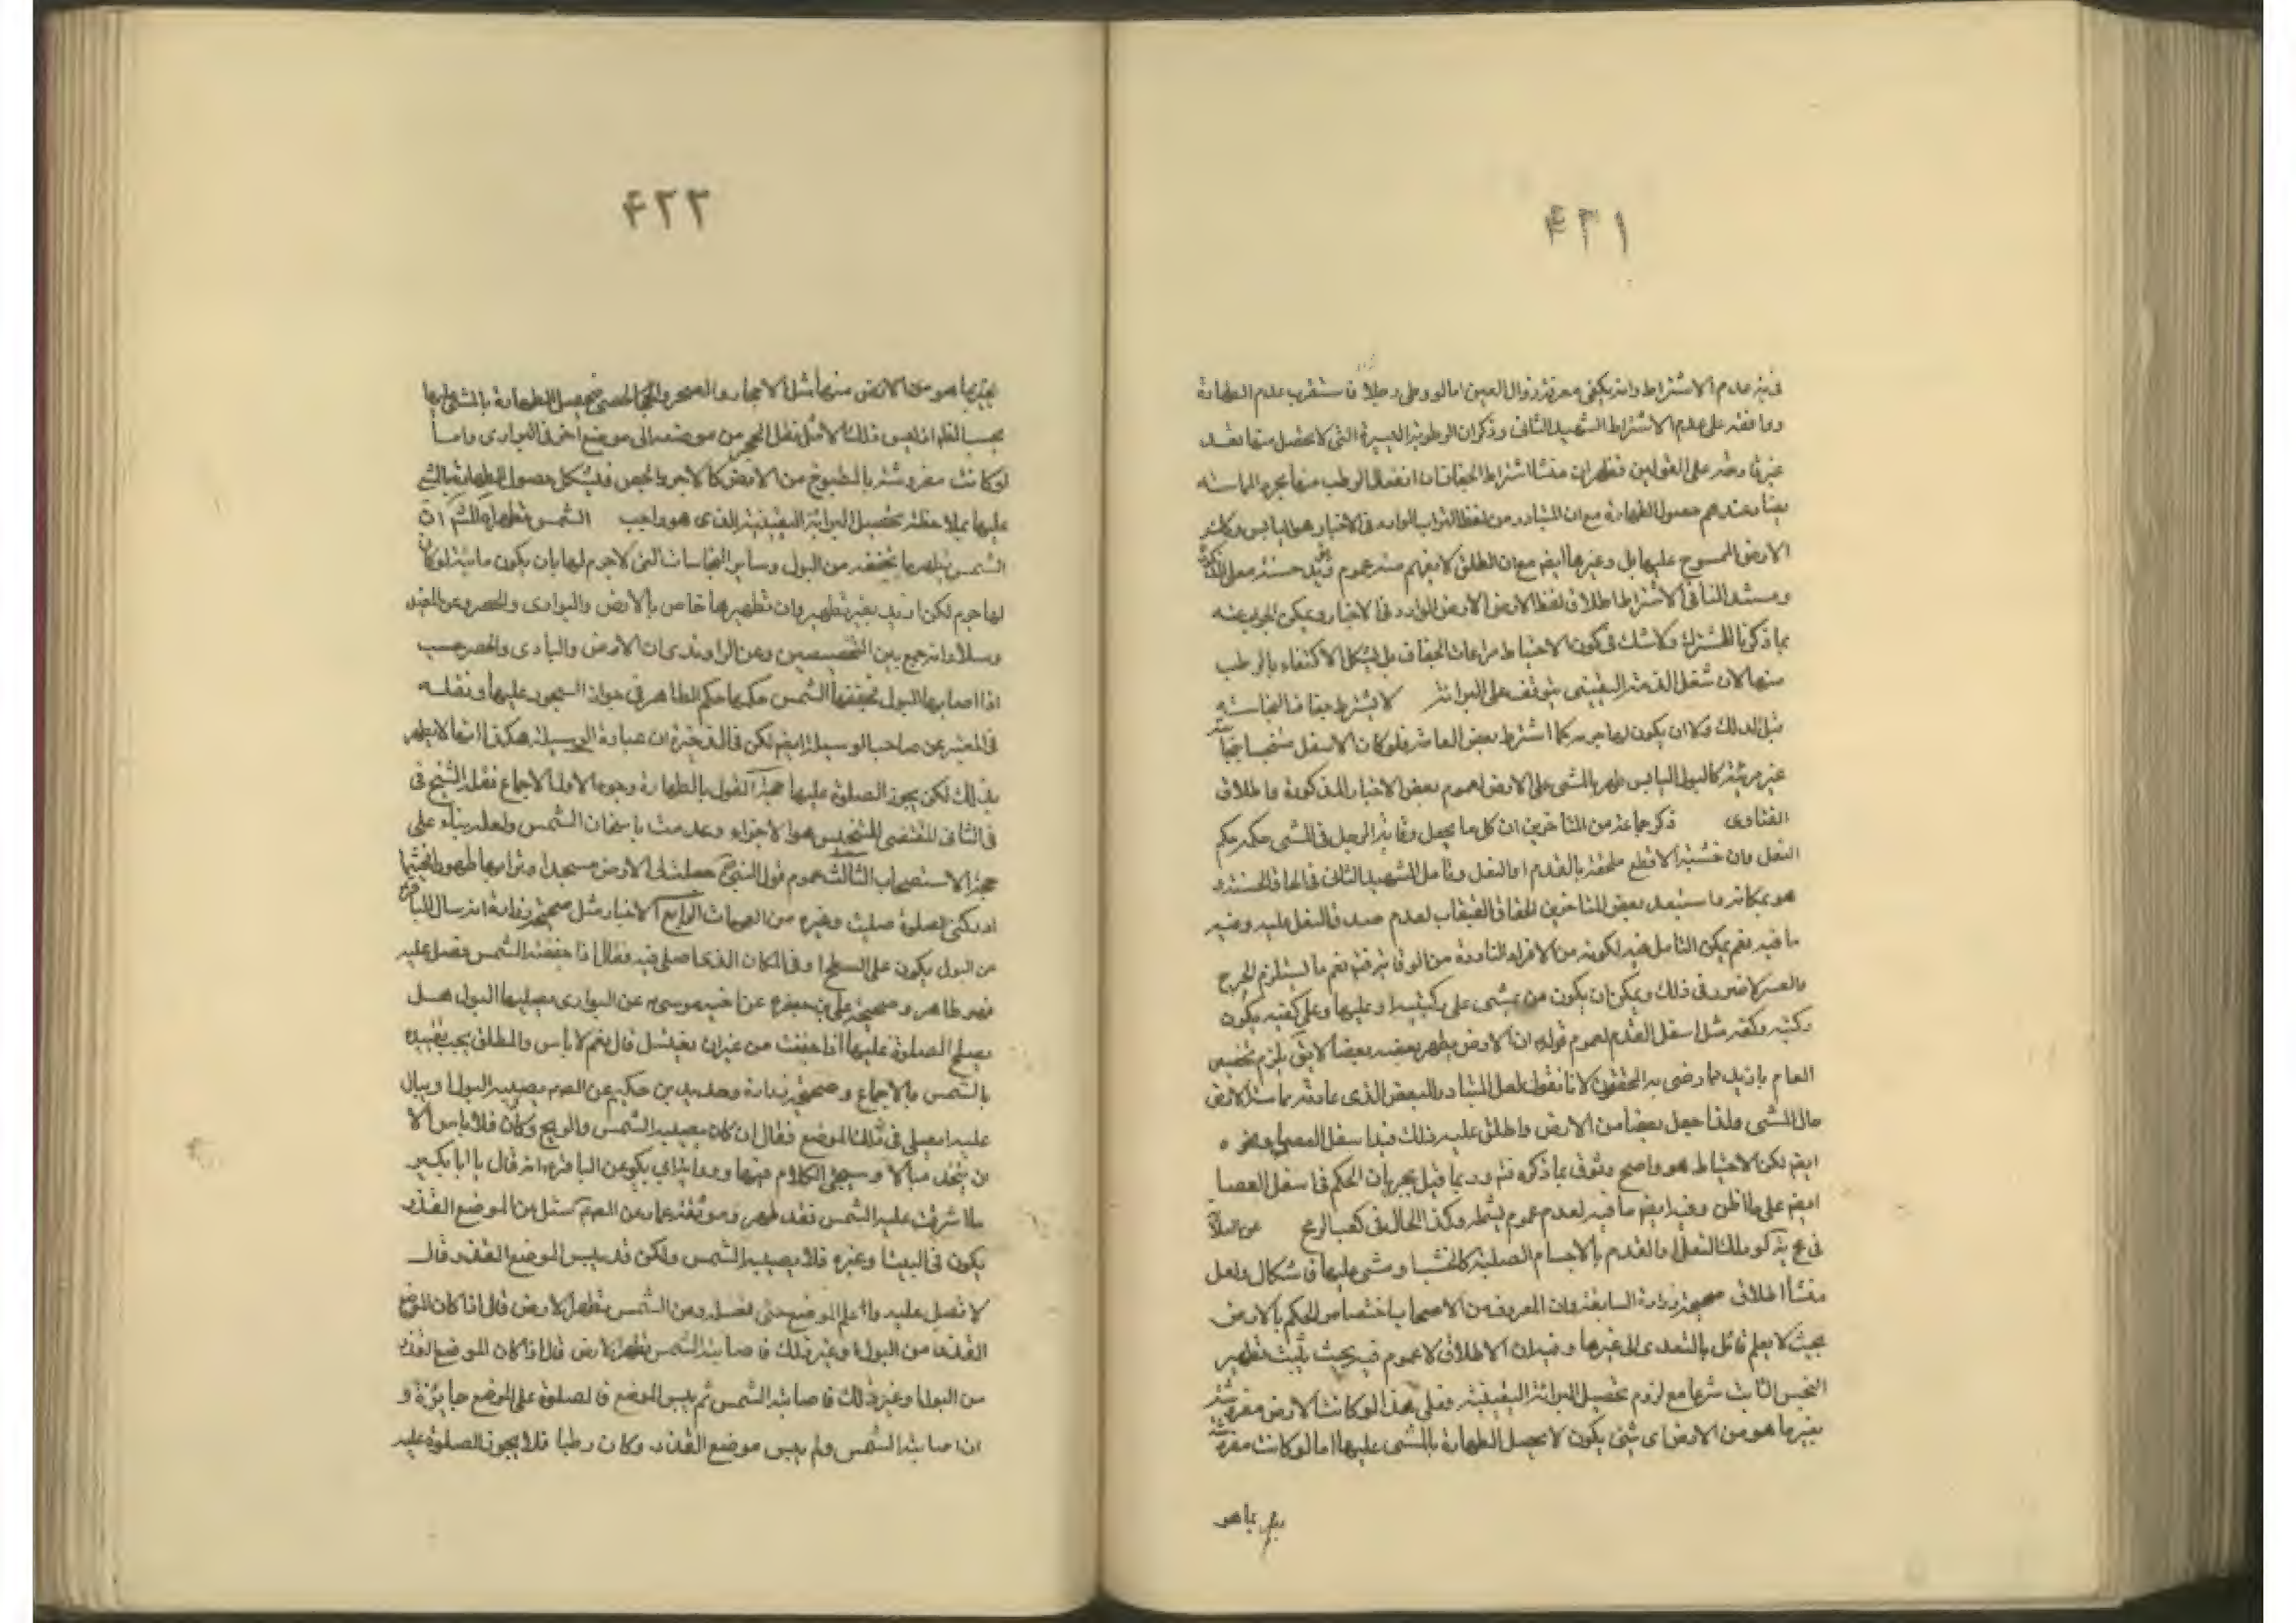 ۴۲۱
عدم الاشتراط وانه يكفى معه زوال العين اما لو وطى وحلا فاستقرب عدم الطهارة
ووافقه على عدم الاشتراط الشهيد الثانى وذكر ان الرطوبة اليسيرة التى لا يحصل منها تعد
غير قادحة على القولين فظهر ان منشا اشتراط الجفاف ان انفعال الرطب منها بمجرد المماسته
عندهم حصول الطهارة مع ان المتبادر من لفظ التراب الوارد فى الاخبار هو اليابس
الارض الممسوح عليها بل وغيرها ايضم مع ان المطلق لا يفهم منه عموم
ومستند النافى الاشتراط اطلاق لفظ الارض الوارد فى الاخبار ويمكن الجواب عنه
بما ذكرنا ولا شك فى كون الاحتياط مراعات الجفاف بل يشكل الاكتفاء بالرطب
منها لان شغل الذمة اليقينى يتوقف على البرائة لا يشترط جفاف النجاسة
قبل الدلك ولا ان يكون لها جرم كما اشترط بعض العامة فلو كان الاسفل متنجسا بنجاسة
غير مرئية كالبول اليابس طهر بالمشى على الارض لعموم بعض الاخبار المذكورة واطلاق
الفتاوى ذكر جماعة من المتاخرين ان كل ما يجعل وقاية الرجل فى المشى حكمه حكم
النعل وان خشبة الاقطع ملحقة بالقدم او النعل وتامل الشهيد الثانى فى الحاق الخشبة و
هو بمكانه واستبعد بعض المتاخرين الحاق القبقاب لعدم صدق النعل عليه وفيه
ما فيه نعم يمكن التامل فيه لكونه من الافراد النادرة من نعم ما يستلزم الحرج
والعسر لا ضرر فى ذلك ويمكن ان يكون من يمشى على ركبتيه او عليها وعلى كفيه يكون
ركبته وكفه مثل اسفل القدم لعموم قوله ان الارض يطهر بعضه بعضا لا يق يلزم تخصيص
العام بازيد مما رضى به المحققون لانا نقول لعل المتبادر البعض الذى عادته مماسة الارض
حال المشى ولذا جعل بعضا من الارض واطلق عليه ذلك فيدا سفل العصا ونحوه
ايضم لكن الاحتياط هو واضح وربما قيل بجريان الحكم فى اسفل العصا
ايضم على ما ظن وفيه ايضم ما فيه لعدم عموم وكذا الحال فى كعب الرمح
كو دلك النعل او القدم بالاجسام الصلبة كالخشب او مشى عليها فاشكال ولعل
منشأ اطلاق صحيحة زرارة السابقة وان المعروف من الاصحاب اختصاص الحكم بالارض
بحيث لا يعلم قائل بالتعدى الى غيرها وفيه ان الاطلاق لا عموم فيه بحيث يثبت تطهير
النجس الثابت شرعا مع لزوم تحصيل البرائة اليقينية فعلى هذا لو كانت الارض مفروشة
بغير ما هو من الارض اى شئ يكون لا يحصل الطهارة بالمشى عليها اما لو كانت مفروشة
بغير ما هو
۴۲۲
بغير ما هو من الارض منها مثل الاحجار والصخر والحصى فيحصل الطهارة بالمشى عليها
بحسب الظم اذ ليس ذلك الا مثل نقل الحجر من موضعه الى موضع اخر فى البوادى واما
لو كانت مفروشة بالمطبوخ من الارض كالاجر والجص فليشكل حصول الطهارة بالمشى
عليها بملاحظة تحصيل البرائة اليقينية الذى هو واجب الشمس
الشمس يطهر ما يجففه من البول وساير النجاسات التى لا جرم لها بان يكون مائية لو كان
لها جرم لكن ازيد بغير تطهير وان تطهيرها خاص بالارض والبوادى والحصر وعن المفيد
وسلار انه جمع بين التخصيصين وعن الراوندى ان الارض والبادى والحصر حسب
اذا اصابها البول تجففها الشمس حكمها حكم الطاهر فى جواز السجود عليها ونقله
فى المعتبر عن صاحب الوسيلة ايضم لكن فى الذخيرة ان عبارة الوسيلة هكذا انها لا يطهر
بذلك لكن يجوز الصلوة عليها حجة القول بالطهارة وجوه الاول الاجماع نقله الشيخ فى
فى الثانى المقتضى للتنجيس هو الاجزاء وعدمت باسخان الشمس ولعله بناء على
حجية الاستصحاب الثالث عموم قول النبى ص جعلت لى الارض مسجدا وترابها طهورا اينما
ادركتنى الصلوة صليت وغيره من العمومات الرابع الاخبار مثل صحيحة زرارة انه سال الباقر
عن البول يكون على السطح او فى المكان الذى اصلى فيه فقال اذا جففته الشمس فصل عليه
فهو طاهر وصحيحة على بن جعفر ع عن اخيه موسى ع عن البوارى يصيبها البول هل
يصلح الصلوة عليها اذا جففت من غير ان يغتسل قال نعم لا باس والمطلق يجب تقييده
بالشمس بالاجماع وصحيحة زرارة وحديد بن حكيم عن الصم يصيبه البول او يبال
عليه ايصلى فى ذلك الموضع فقال ان كان يصيبه الشمس والريح وكان فلا باس الا
ان يتخذ مبالا وسيجئ الكلام فيها ورواية ابى بكر عن الباقر ع انه قال يا ابا بكر
ما اشرقت عليه الشمس فقد طهر وموثقة عمار عن الصم سئل عن الموضع القذر
يكون فى البيت او غيره فلا يصيبه الشمس ولكن قد يبس الموضع القذر قال
لا تصل عليه واعلم الموضع حتى تغسله وعن الشمس تطهر الارض قال اذا كان الموضع
القذر من البول او غير ذلك فاصابته الشمس تطهر الارض قال اذا كان الموضع القذر
من البول او غير ذلك فاصابته الشمس ثم يبس الموضع فالصلوة على الموضع جايزة و
ان اصابته الشمس ولم ييبس موضع القذر وكان رطبا فلا يجوز الصلوة عليه